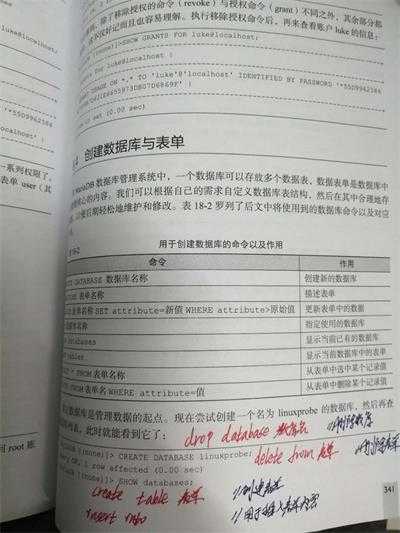 除了移除授权的命令（revoke）与授权命令（grant）不同之外，其余部分都
而且也容易理解。执行移除授权命令后，再来查看账户 luke 的信息：
SHOW GRANTS FOR luke@localhost;
luke@localhost
USAGE ON *.* TO 'luke'@'localhost' IDENTIFIED BY PASSWORD
(0.00 sec)
创建数据库与表单
MariaDB 数据库管理系统中，一个数据库可以存放多个数据表，数据表单是数据库中
核心的内容。我们可以根据自己的需求自定义数据库表结构，然后在其中合理地存
以便后期轻松地维护和修改。表 18-2 罗列了后文中将使用到的数据库命令以及对应
用于创建数据库的命令以及作用
命令 作用
DATABASE 数据库名称 创建新的数据库
表单名称 描述表单
表单名称 SET attribute=新值 WHERE attribute>原始值 更新表单中的数据
数据库名称 指定使用的数据库
databases 显示当前已有的数据库
tables 显示当前数据库中的表单
FROM 表单名称 从表单中选中某个记录值
FROM 表单名 WHERE attribute=值 从表单中删除某个记录值
数据库是管理数据的起点。现在尝试创建一个名为 linuxprobe 的数据库，然后再查
列表，此时就能看到它了：
drop database 数据库名
[(none)]> CREATE DATABASE linuxprobe;
delete from 表单
OK, 1 row affected (0.00 sec)
[(none)]> SHOW databases;
create table 表单 //创建表单
insert into //用于插入表单内容
341
一系列权限了。
表单 user（其